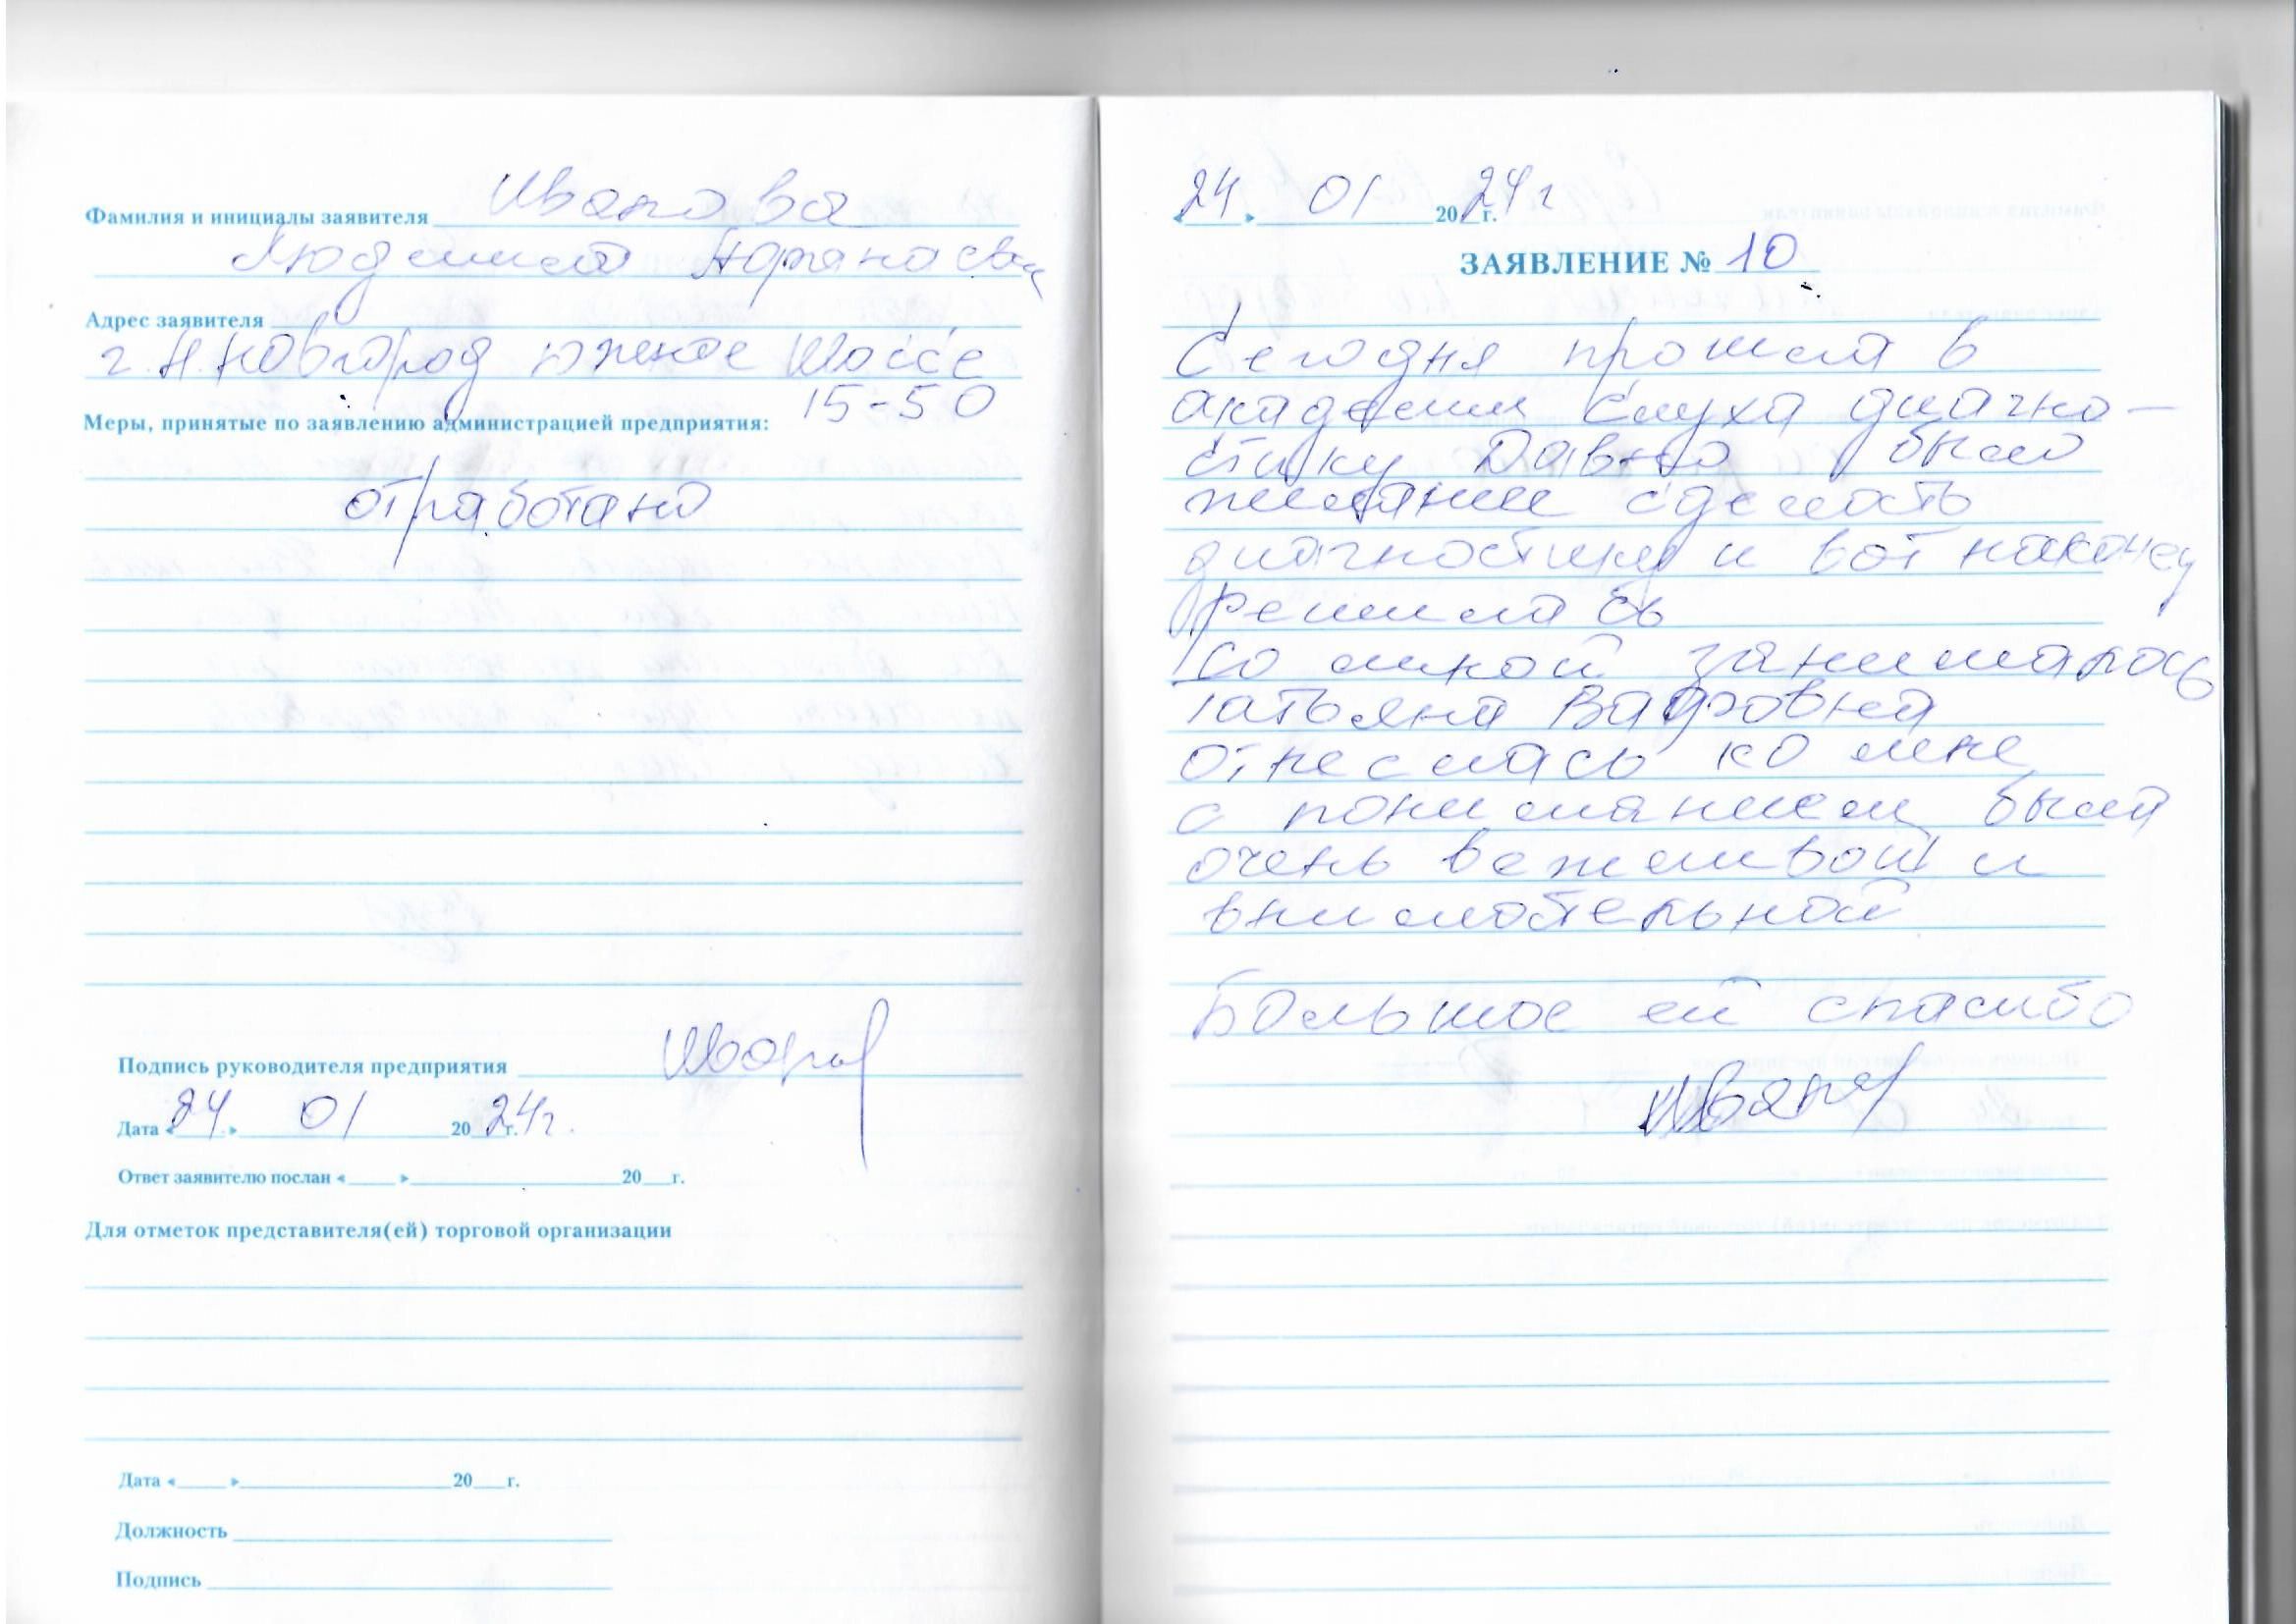 Фамилия и инициалы заявителя Иванова
Людмила Афанасьевна
Адрес заявителя
г. Н.Новгород южное шоссе
15-50
Меры, принятые по заявлению администрацией предприятия:
отработано
Подпись руководителя предприятия
Дата « 24 » 01 20 24г. г.
Ответ заявителю послан « » 20 г.
Для отметок представителя(ей) торговой организации
Дата « » 20 г.
Должность
Подпись
« 24 » 01 20 24г г.
ЗАЯВЛЕНИЕ № 10
Сегодня прошла в
академии Слуха диагно-
стику Давно было
желание сделать
диагностику и вот наконец
решилась
Со мной занималась
Татьяна
отнеслась ко мне
с пониманием была
очень вежливой и
внимательной
Большое ей спасибо